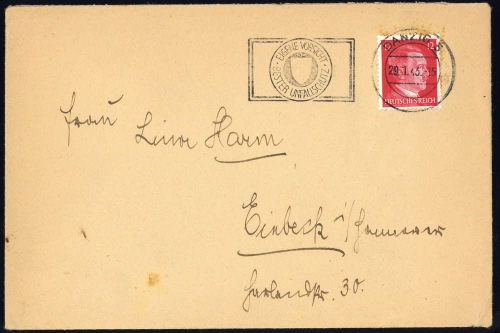 EIGENE VORSICHT
BESTER UNFALLSCHUTZ
DANZIG 5
29.1.43
12
DEUTSCHES REICH
Frau Harm
Einbeck i/Hannover
Harlandstr. 30.